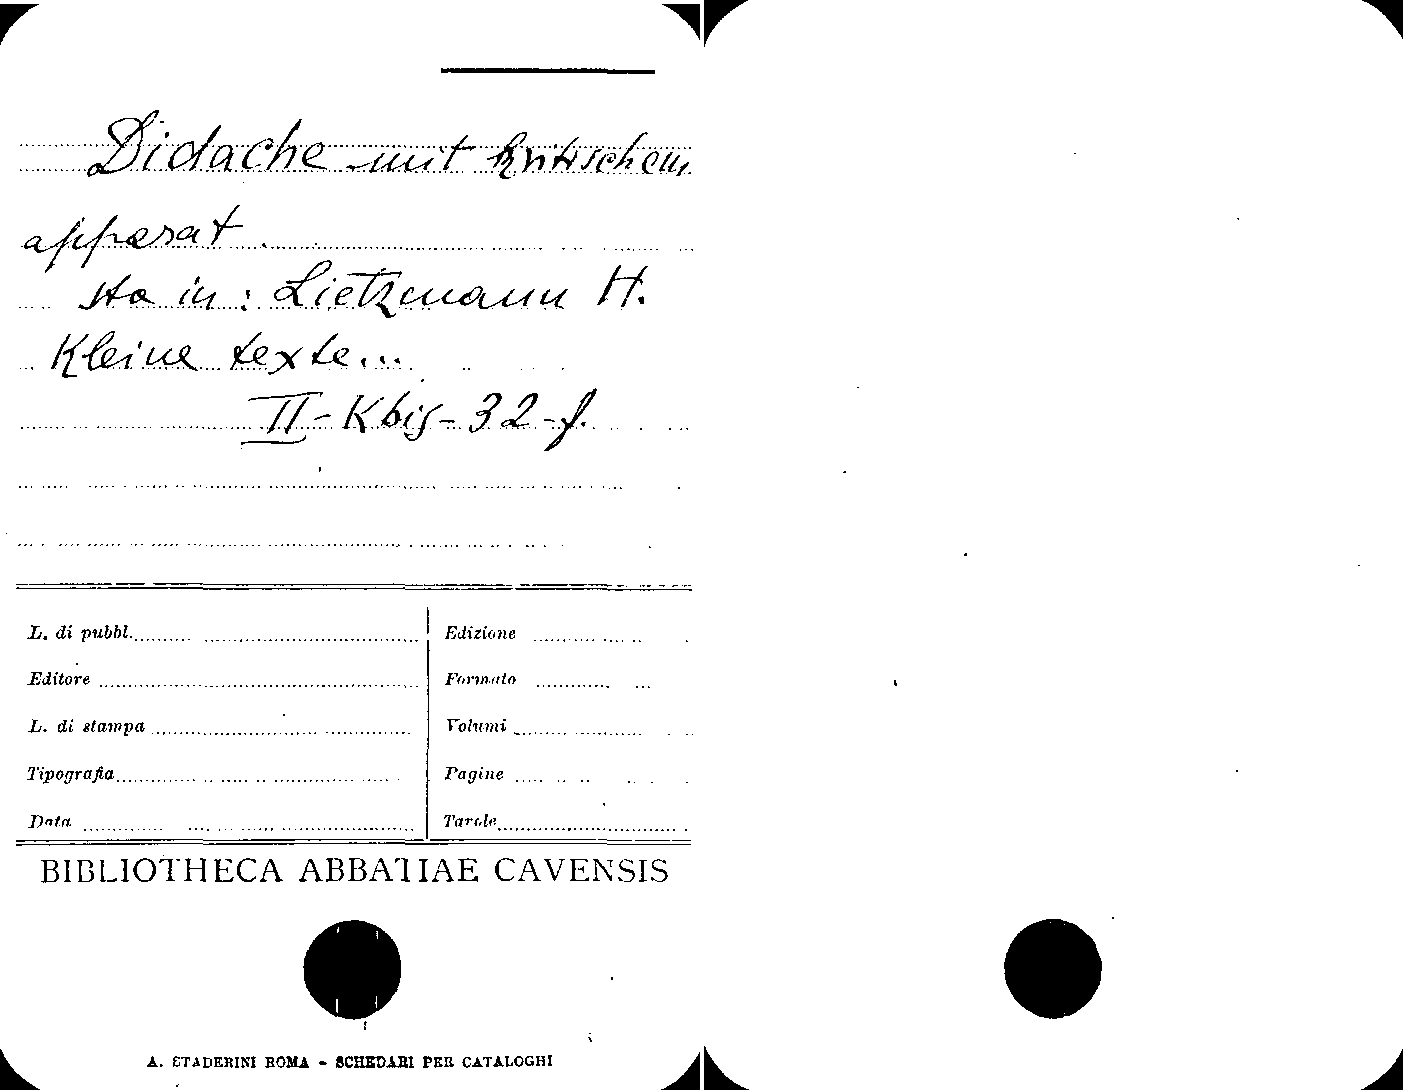 Didache mit kritischem
apparat.
sta in: Lietzmann H.
Kleine texte...
II-Kbis-32-f.
L. di pubbl.
Edizione
Editore
Formato
L. di stampa
Volumi
Tipografia
Pagine
Data
Tavole
BIBLIOTHECA ABBATIAE CAVENSIS
A. STADERINI ROMA - SCHEDARI PER CATALOGHI